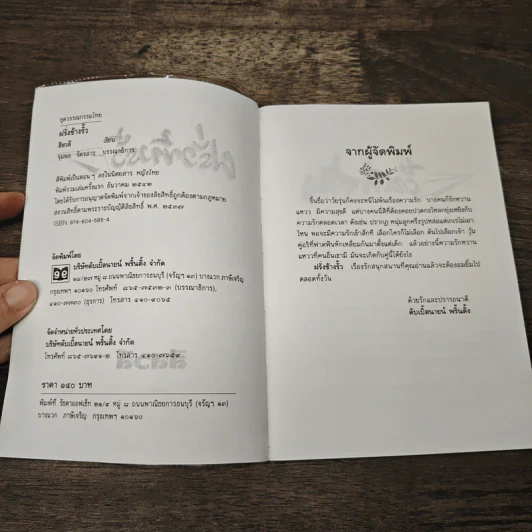 ชุดวรรณกรรมไทย
ฝรั่งข้างรั้ว
สีตลี เขียน
จุมพล รัตรสาร บรรณาธิการ
ตีพิมพ์เป็นตอน ๆ ลงในนิตยสาร หญิงไทย
พิมพ์รวมเล่มครั้งแรก ธันวาคม ๒๕๔๒
โดยได้รับการอนุญาตจัดพิมพ์จากเจ้าของลิขสิทธิ์ถูกต้องตามกฎหมาย
สงวนลิขสิทธิ์ตามพระราชบัญญัติลิขสิทธิ์ พ.ศ. ๒๕๓๗
ISBN 974-604-695-4
จัดพิมพ์โดย
บริษัทดับเบิ้ลนายน์ พริ้นติ้ง จำกัด
๑๘/๒๗ หมู่ ๘ ถนนพาณิชยการธนบุรี (จรัญฯ ๑๓) บางแวก ภาษีเจริญ
กรุงเทพฯ ๑๐๑๖๐ โทรศัพท์ (บรรณาธิการ),
(ธุรการ) โทรสาร
จัดจำหน่ายทั่วประเทศโดย
บริษัทดับเบิ้ลนายน์ พริ้นติ้ง จำกัด
โทรศัพท์ โทรสาร
ราคา ๑๔๐ บาท
พิมพ์ที่ รัชดาออฟเซ็ท ๒๑/๙ หมู่ ๘ ถนนพาณิชยการธนบุรี (จรัญฯ ๑๓)
บางแวก ภาษีเจริญ กรุงเทพฯ ๑๐๑๖๐
จากผู้จัดพิมพ์
ขึ้นชื่อว่าวัยรุ่นก็คงจะหนีไม่พ้นเรื่องความรัก บางคนก็รักหวาน
แหวว มีความสุขดี แต่บางคนนี่สิที่ต้องคอยปวดกะโหลกยุ่งเหยิงกับ
ความรักตลอดเวลา ดังเช่น หนุ่มลูกครึ่งรูปหล่อแต่เกเรไม่เอา
ไหน พอจะมีความรักเข้าสักที เลือกใครก็ไม่เลือก ดันไปเลือกเจ้า วุ้น
คู่อริที่ฟาดฟันหักเหลี่ยมกันมาตั้งแต่เด็ก แล้วอย่างนี้ความรักหวาน
แหววที่คนอื่นเขามี มันจะเกิดกับคู่นี้ได้ยังไง
ฝรั่งข้างรั้ว เรื่องรักสนุกสนานที่คุณอ่านแล้วจะต้องอมยิ้มไป
ตลอดทั้งวัน
ด้วยรักและปรารถนาดี
ดับเบิ้ลนายน์ พริ้นติ้ง